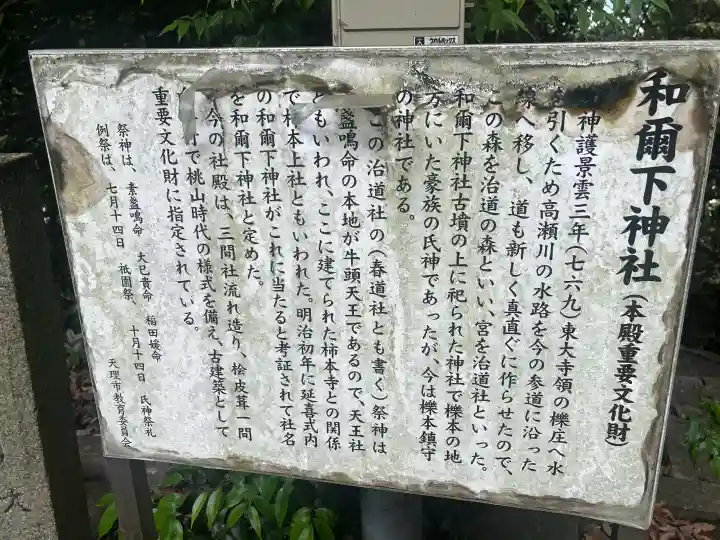 和爾下神社（本殿重要文化財）
神護景雲三年（七六九）東大寺領の櫟庄へ水
を引くため高瀬川の水路を今の参道に沿った
線へ移し、道も新しく真直ぐに作らせたので、
この森を治道の森といい、宮を治道社といった。
和爾下神社古墳の上に祀られた神社で櫟本の地
方にいた豪族の氏神であったが、今は櫟本鎮守
の神社である。
この治道社の（春道社とも書く）祭神は
盞鳴命の本地が牛頭天王であるので、天王社
ともいわれ、ここに建てられた柿本寺との関係
で柿本上社ともいわれた。明治初年に延喜式内
の和爾下神社がこれに当たると考証されて社名
を和爾下神社と定めた。
今の社殿は、三間社流れ造り、桧皮葺一間
で桃山時代の様式を備え、古建築として
重要文化財に指定されている。
祭神は、素盞鳴命 大己貴命 稲田媛命
例祭は、七月十四日 祇園祭、十月十四日 氏神祭礼
天理市教育委員会